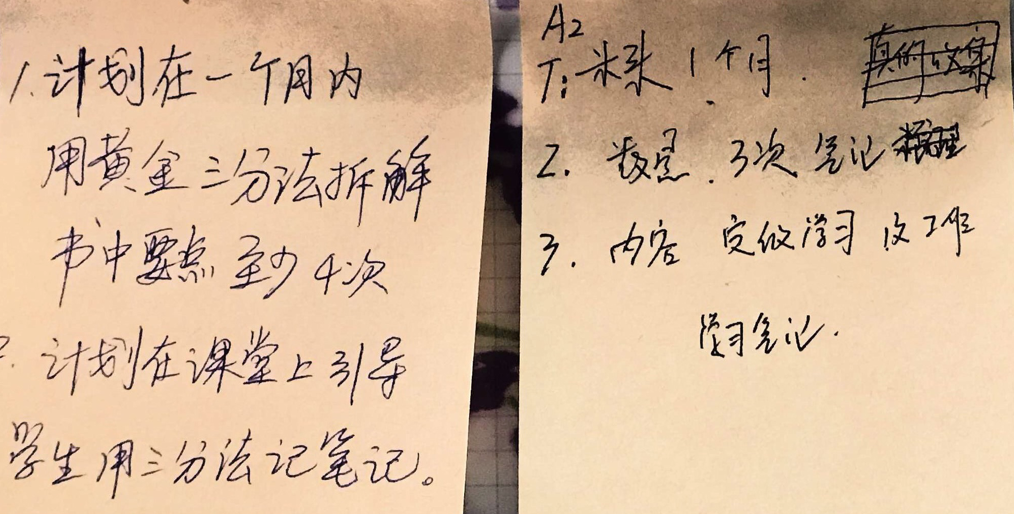 1.计划在一个月内
用黄金三分法拆解
书中要点至少4次
2.计划在课堂上引导
学生用三分法记笔记。
A2
1:未来1个月.
2.数量.3次笔记
3.内容 完成学习 工作
学习笔记.